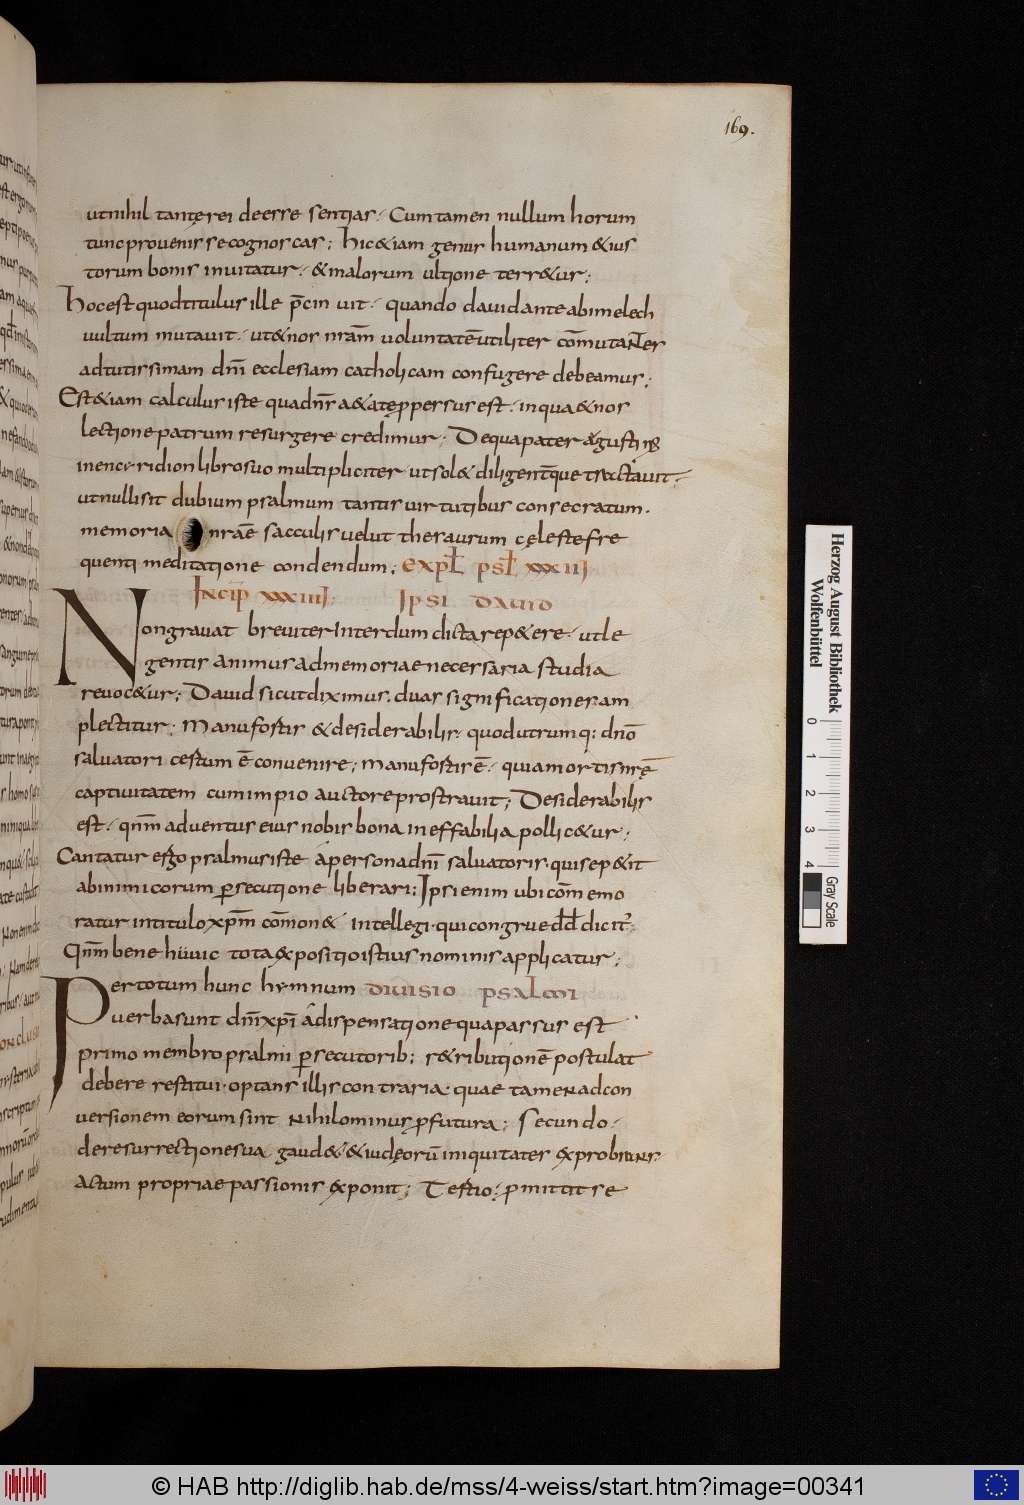 169.
utnihil tantę rei deesse sentias. Cum tamen nullum horum
tunc provenisse cognoscas; hic &iam genus humanum & ius
torum bonis invitatur. & malorum ultione terr&ur;
hoc est quod titulus ille p̄cinuit. quando david ante abimelech
vultum mutavit. ut & nos nr̄am voluntatē utiliter cōmutantes
ad tutissimam dn̄i ecclesiam catholicam confugere debeamus;
Est &iam calculus iste quadris a &atę perpersus est. in qua & nos
lectione patrum resurgere credimus; De qua pater agustinus
in encyridion libro suo multipliciter ut sol& diligentq̄ue tractavit.
ut nulli sit dubium psalmum tantis virtutibus consecratum.
memoriae nr̄ae sacculis velut thesaurum cęleste fre
quenti meditatione condendum; expł psł xxxiii
Incip̄ xxxiiii. Ipsi david
Non gravat breviter interdum dicta rep&ere. ut le
gentis animus ad memoriae necessaria studia
revoc&ur; David sicut diximus. duas significationes am
plectitur; Manu fostis & desiderabilis. quod utrumq; dn̄o
salvatori cestum ē convenire; manu fostis ē. quia mortis nr̄ę
captivitatem cum impio auctore prostravit; Desiderabilis
est. qn̄m adventus eius nobis bona ineffabilia pollic&ur;
Cantatur ergo psalmus iste a persona dn̄i salvatoris. qui se p&it
ab inimicorum p̱secutione liberari; Ipsi enim ubi cōmemo
ratur in titulo xpm̄ cōmon& intellegi. qui congrue dd̄ dicit̄.
Qn̄m bene huuic tota expositio istius nominis applicatur;
Per totum hunc hymnum divisio psalmi
verba sunt dn̄i xpī a dispensatione qua passus est
primo membro psalmi p̱secutorib; r&ributionē postulat
debere restitui. optans illis contraria. quae tamen ad con
versionem eorum sint nihilominus p̱futura; Secundo.
de resurrectione sua gaud& & iudęorū iniquitates exprobrans.
actum propriae passionis exponit; Tertio: promittit se
Herzog August Bibliothek
Wolfenbüttel
0 1 2 3 4
Gray Scale
© HAB http://diglib.hab.de/mss/4-weiss/start.htm?image=00341